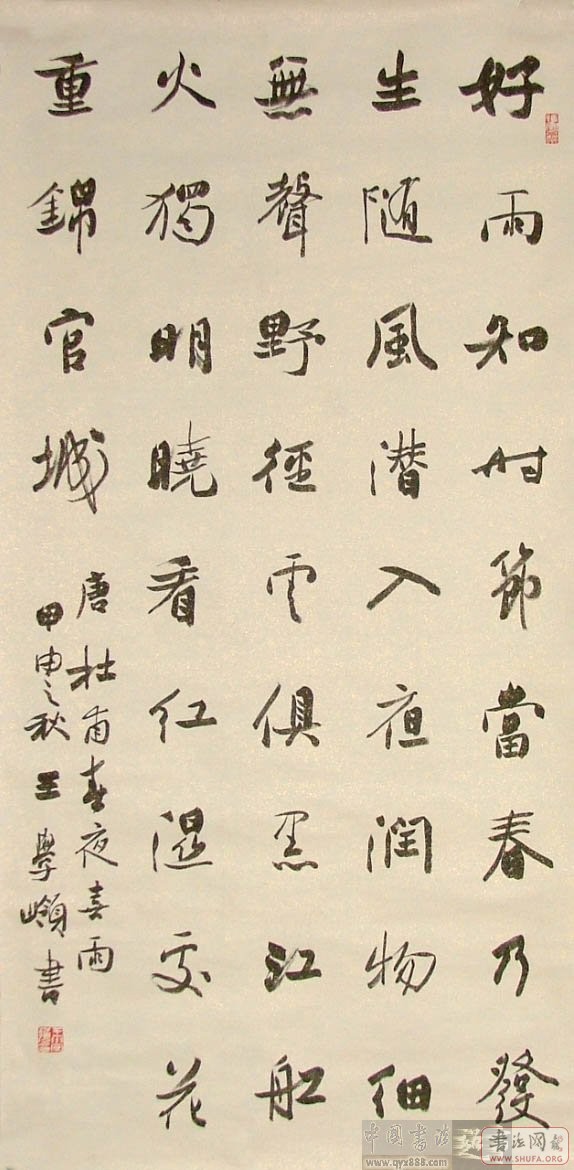 好雨知时節當春乃發
生随風潜入夜潤物細
無聲野徑雲俱黑江船
火獨明曉看紅濕處花
重錦官城
唐杜甫春夜喜雨
甲申之秋王學嶺書
中国書法
www.qyx888.com
書法网
WWW.SHUFA.ORG